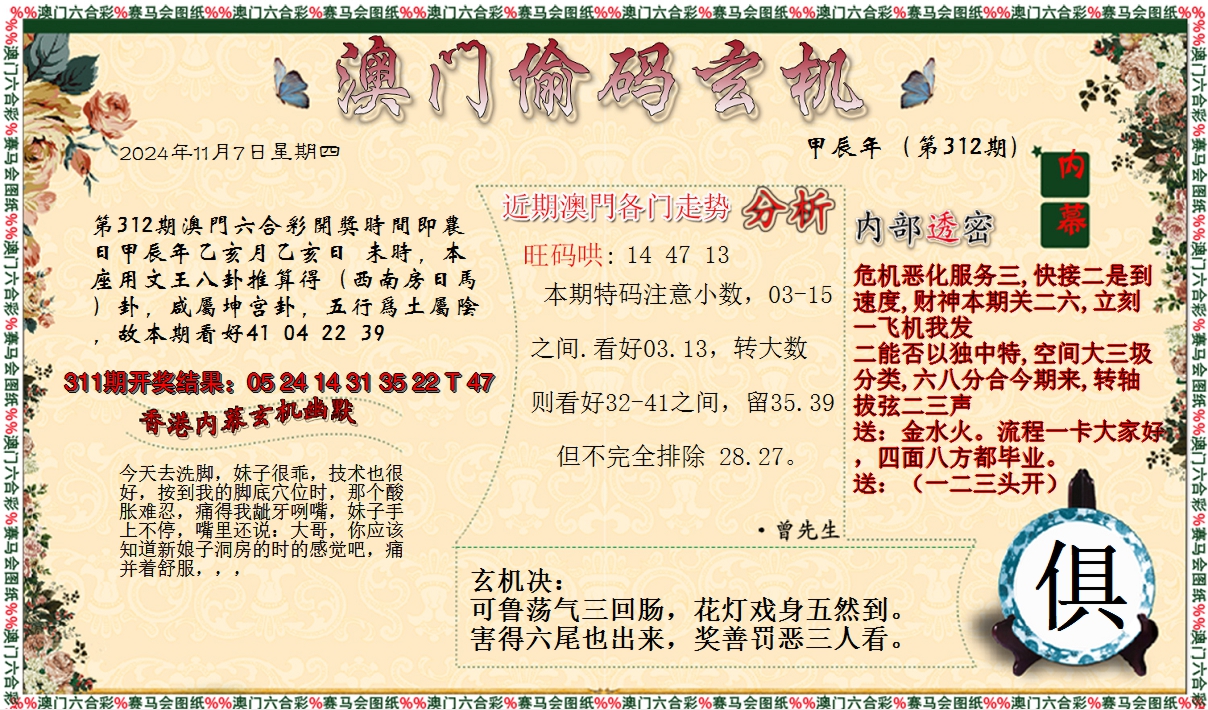 %%澳门六合彩%赛马会图纸%%澳门六合彩%赛马会图纸%%澳门六合彩%赛马会图纸%%澳门六合彩%赛马会图纸%%澳门六合彩%赛马会图纸%%澳门六合彩%赛马会图纸%%
澳门偷码玄机
2024年11月7日星期四
甲辰年（第312期）
内
幕
第312期澳門六合彩開獎時間即農
日甲辰年乙亥月乙亥日 未時，本
座用文王八卦推算得（西南房日馬
）卦，咸屬坤宫卦，五行爲土屬陰
，故本期看好41 04 22 39
311期开奖结果：05 24 14 31 35 22 T 47
香港内幕玄机幽默
今天去洗脚，妹子很乖，技术也很
好，按到我的脚底穴位时，那个酸
胀难忍，痛得我龇牙咧嘴，妹子手
上不停，嘴里还说：大哥，你应该
知道新娘子洞房的时的感觉吧，痛
并着舒服，，，
近期澳門各门走势 分析
旺码哄: 14 47 13
本期特码注意小数，03-15
之间.看好03.13，转大数
则看好32-41之间，留35.39
但不完全排除 28.27。
·曾先生
内部透密
危机恶化服务三,快接二是到
速度,财神本期关二六,立刻
一飞机我发
二能否以独中特,空间大三圾
分类,六八分合今期来,转轴
拔弦二三声
送：金水火。流程一卡大家好
，四面八方都毕业。
送：（一二三头开）
玄机决：
可鲁荡气三回肠，花灯戏身五然到。
害得六尾也出来，奖善罚恶三人看。
俱
%%澳门六合彩%赛马会图纸%%澳门六合彩%赛马会图纸%%澳门六合彩%赛马会图纸%%澳门六合彩%赛马会图纸%%澳门六合彩%赛马会图纸%%澳门六合彩%赛马会图纸%%